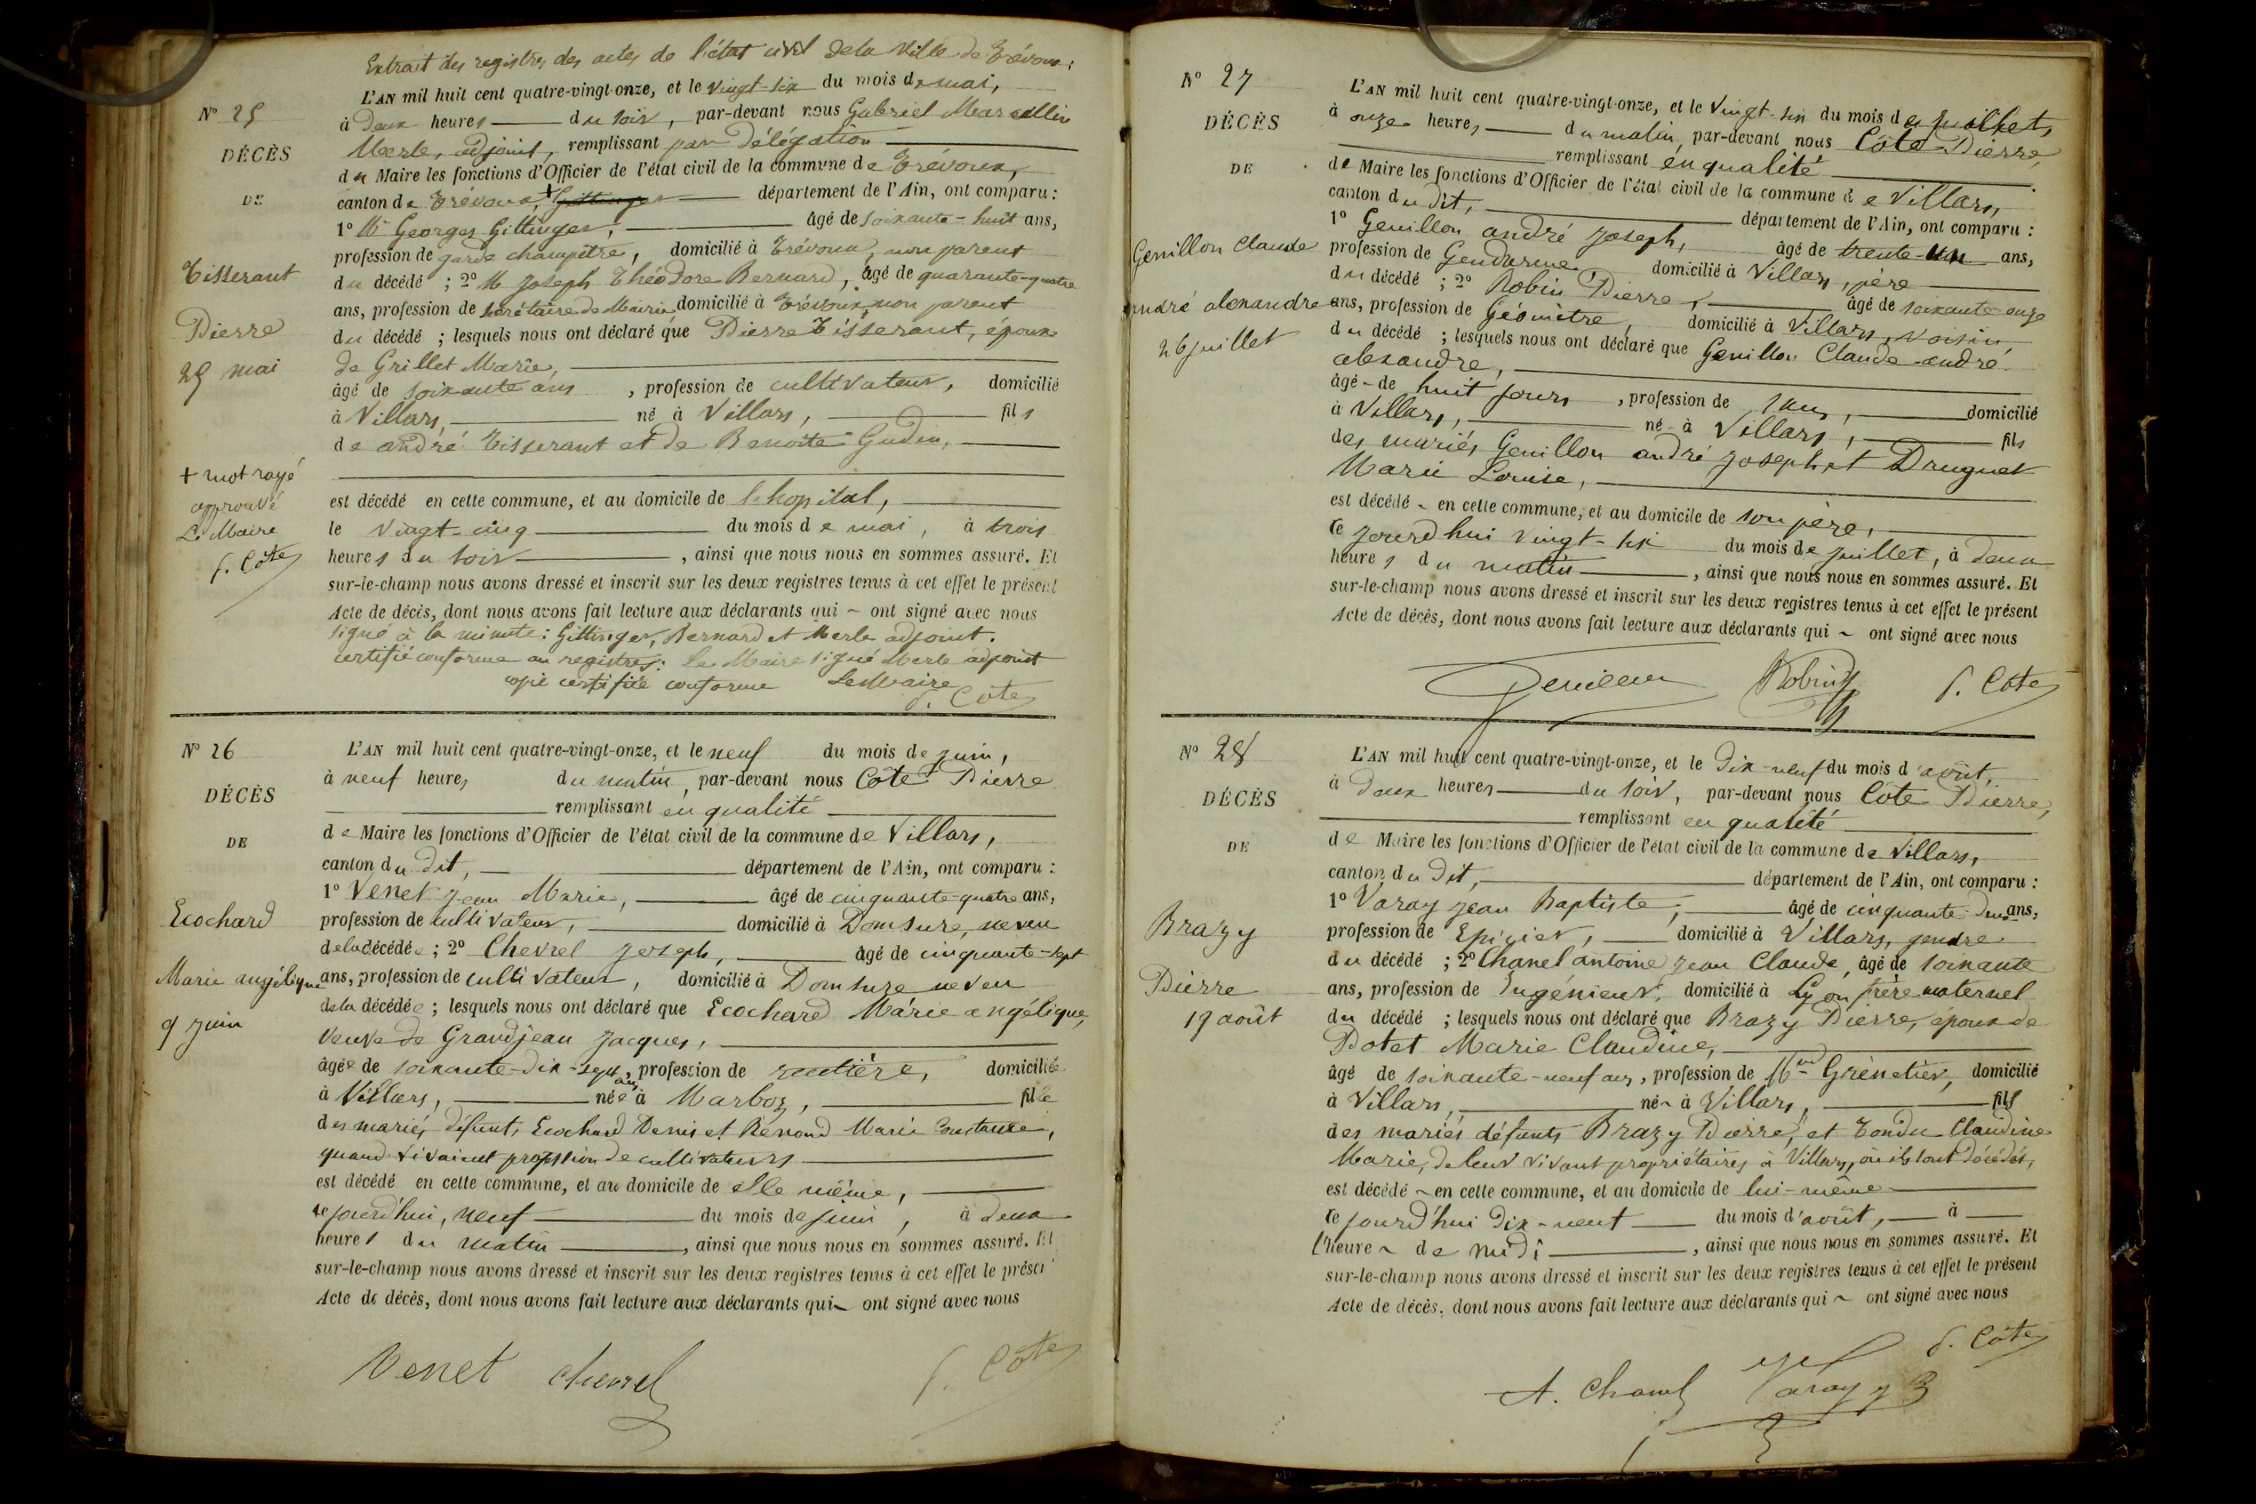 Extrait des registres des actes de l'état civil de la Ville de Trévoux :
N° 25
L'AN mil huit cent quatre-vingt-onze, et le vingt-six du mois de mai,
à deux heures du soir, par-devant nous Gabriel Marcellin
DÉCÈS
Merle, adjoint, remplissant par Délégation
du Maire les fonctions d'Officier de l'état civil de la commune de Trévoux,
DE
canton de Trévoux, + département de l'Ain, ont comparu :
1° Mr Georges Gittinger, âgé de soixante-huit ans,
profession de garde champêtre, domicilié à Trévoux, non parent
Tisserant
du décédé ; 2° M Joseph Théodore Bernard, âgé de quarante-quatre
ans, profession de secrétaire de Mairie domicilié à Trévoux, non parent
Pierre
du décédé ; lesquels nous ont déclaré que Pierre Tisserant, époux
25 mai
de Grillet Marie,
âgé de soixante ans, profession de cultivateur, domicilié
à Villars, né à Villars, fils
de andré Tisserant et de Benoîte Gudin,
+ mot rayé
approuvé
est décédé en cette commune, et au domicile de l'hopital,
Le Maire
le vingt-cinq du mois de mai, à trois
P. Côte
heures du soir, ainsi que nous nous en sommes assuré. Et
sur-le-champ nous avons dressé et inscrit sur les deux registres tenus à cet effet le présent
Acte de décès, dont nous avons fait lecture aux déclarants qui ~ ont signé avec nous
signé à la minute : Gittinger, Bernard et Merle adjoint.
certifié conforme au registres : Le Maire signé Merle adjoint
copie certifiée conforme Le Maire
P. Côte
N° 26
L'AN mil huit cent quatre-vingt-onze, et le neuf du mois de juin,
à neuf heures du matin, par-devant nous Côte Pierre
DÉCÈS
remplissant en qualité
de Maire les fonctions d'Officier de l'état civil de la commune de Villars,
DE
canton du dit, département de l'Ain, ont comparu :
1° Venet Jean Marie, âgé de cinquante-quatre ans,
Ecochard
profession de cultivateur, domicilié à Domsure, neveu
de la décédée ; 2° Chevrel Joseph, âgé de cinquante-sept
Marie angélique
ans, profession de cultivateur, domicilié à Domsure neveu
de la décédée ; lesquels nous ont déclaré que Ecochard Marie angélique,
9 juin
veuve de Grandjean Jacques,
âgée de soixante-dix-sept ans, profession de rentière, domiciliée
à Villars, née à Marboz, fille
des mariés défunts Ecochard Denis et Renoud Marie Constance,
quand vivaient profession de cultivateurs
est décédé en cette commune, et au domicile de elle même,
ce jourd'hui, neuf du mois de juin, à deux
heures du matin, ainsi que nous nous en sommes assuré. Et
sur-le-champ nous avons dressé et inscrit sur les deux registres tenus à cet effet le présent
Acte de décès, dont nous avons fait lecture aux déclarants qui ~ ont signé avec nous
Venet Chevrel P. Côte
N° 27
L'AN mil huit cent quatre-vingt-onze, et le vingt-six du mois de juillet,
à onze heures du matin, par-devant nous Côte Pierre,
DÉCÈS
remplissant en qualité
DE
de Maire les fonctions d'Officier de l'état civil de la commune de Villars,
canton du dit, département de l'Ain, ont comparu :
1° Genillon andré Joseph, âgé de trente-un ans,
Genillon Claude
profession de Gendarme, domicilié à Villars, père
du décédé ; 2° Robin Pierre, âgé de soixante onze
andré alexandre
ans, profession de Géomètre, domicilié à Villars, voisin
26 juillet
du décédé ; lesquels nous ont déclaré que Genillon Claude andré
alexandre,
âgé de huit jours, profession de sans, domicilié
à Villars, né à Villars, fils
des mariés Genillon andré Joseph et Druguet
Marie Louise,
est décédé ~ en cette commune, et au domicile de son père,
ce jourd'hui vingt-six du mois de juillet, à deux
heures du matin, ainsi que nous nous en sommes assuré. Et
sur-le-champ nous avons dressé et inscrit sur les deux registres tenus à cet effet le présent
Acte de décès, dont nous avons fait lecture aux déclarants qui ~ ont signé avec nous
Genillon Robin P. Côte
N° 28
L'AN mil huit cent quatre-vingt-onze, et le dix-neuf du mois d'août,
à deux heures du soir, par-devant nous Côte Pierre,
DÉCÈS
remplissant en qualité
DE
de Maire les fonctions d'Officier de l'état civil de la commune de Villars,
canton du dit, département de l'Ain, ont comparu :
1° Varay Jean Baptiste, âgé de cinquante-deux ans,
Brazy
profession de Epicier, domicilié à Villars, gendre
du décédé ; 2° Chanel antoine Jean Claude, âgé de soixante
Pierre
ans, profession de Ingénieur, domicilié à Lyon frère maternel
19 août
du décédé ; lesquels nous ont déclaré que Brazy Pierre, époux de
Potet Marie Claudine,
âgé de soixante-neuf ans, profession de Md Grènetier, domicilié
à Villars, né ~ à Villars, fils
des mariés défunts Brazy Pierre, et Tondu Claudine
Marie, de leur vivant propriétaires à Villars, où ils sont décédés,
est décédé ~ en cette commune, et au domicile de lui-même
ce jourd'hui dix-neuf du mois d'août, à
l'heure ~ de midi, ainsi que nous nous en sommes assuré. Et
sur-le-champ nous avons dressé et inscrit sur les deux registres tenus à cet effet le présent
Acte de décès, dont nous avons fait lecture aux déclarants qui ~ ont signé avec nous
A. Chanel Varay P. Côte